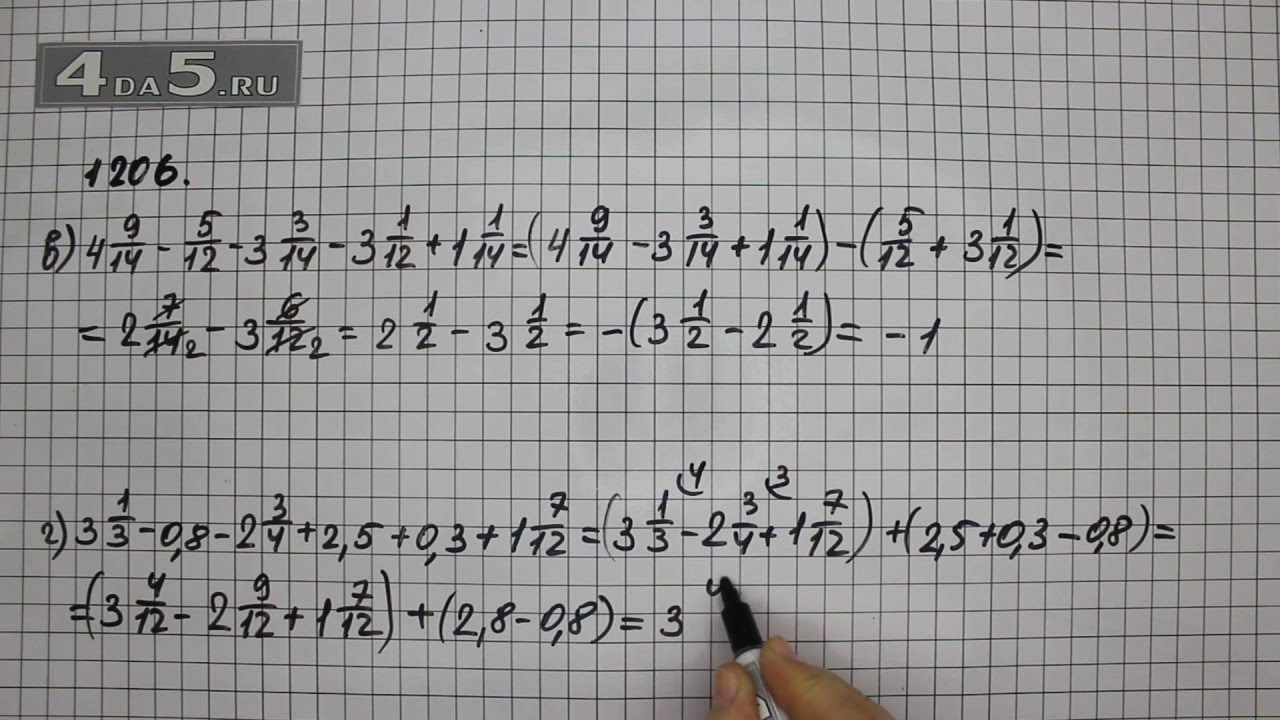 4DA5.RU
1206.
в) 4 9/14 - 5/12 - 3 3/14 - 3 1/12 + 1 1/14 = (4 9/14 - 3 3/14 + 1 1/14) - (5/12 + 3 1/12) =
= 2 7/14 2 - 3 6/12 2 = 2 1/2 - 3 1/2 = - (3 1/2 - 2 1/2) = - 1
4 3
г) 3 1/3 - 0,8 - 2 3/4 + 2,5 + 0,3 + 1 7/12 = (3 1/3 - 2 3/4 + 1 7/12) + (2,5 + 0,3 - 0,8) =
= (3 4/12 - 2 9/12 + 1 7/12) + (2,8 - 0,8) = 3 4